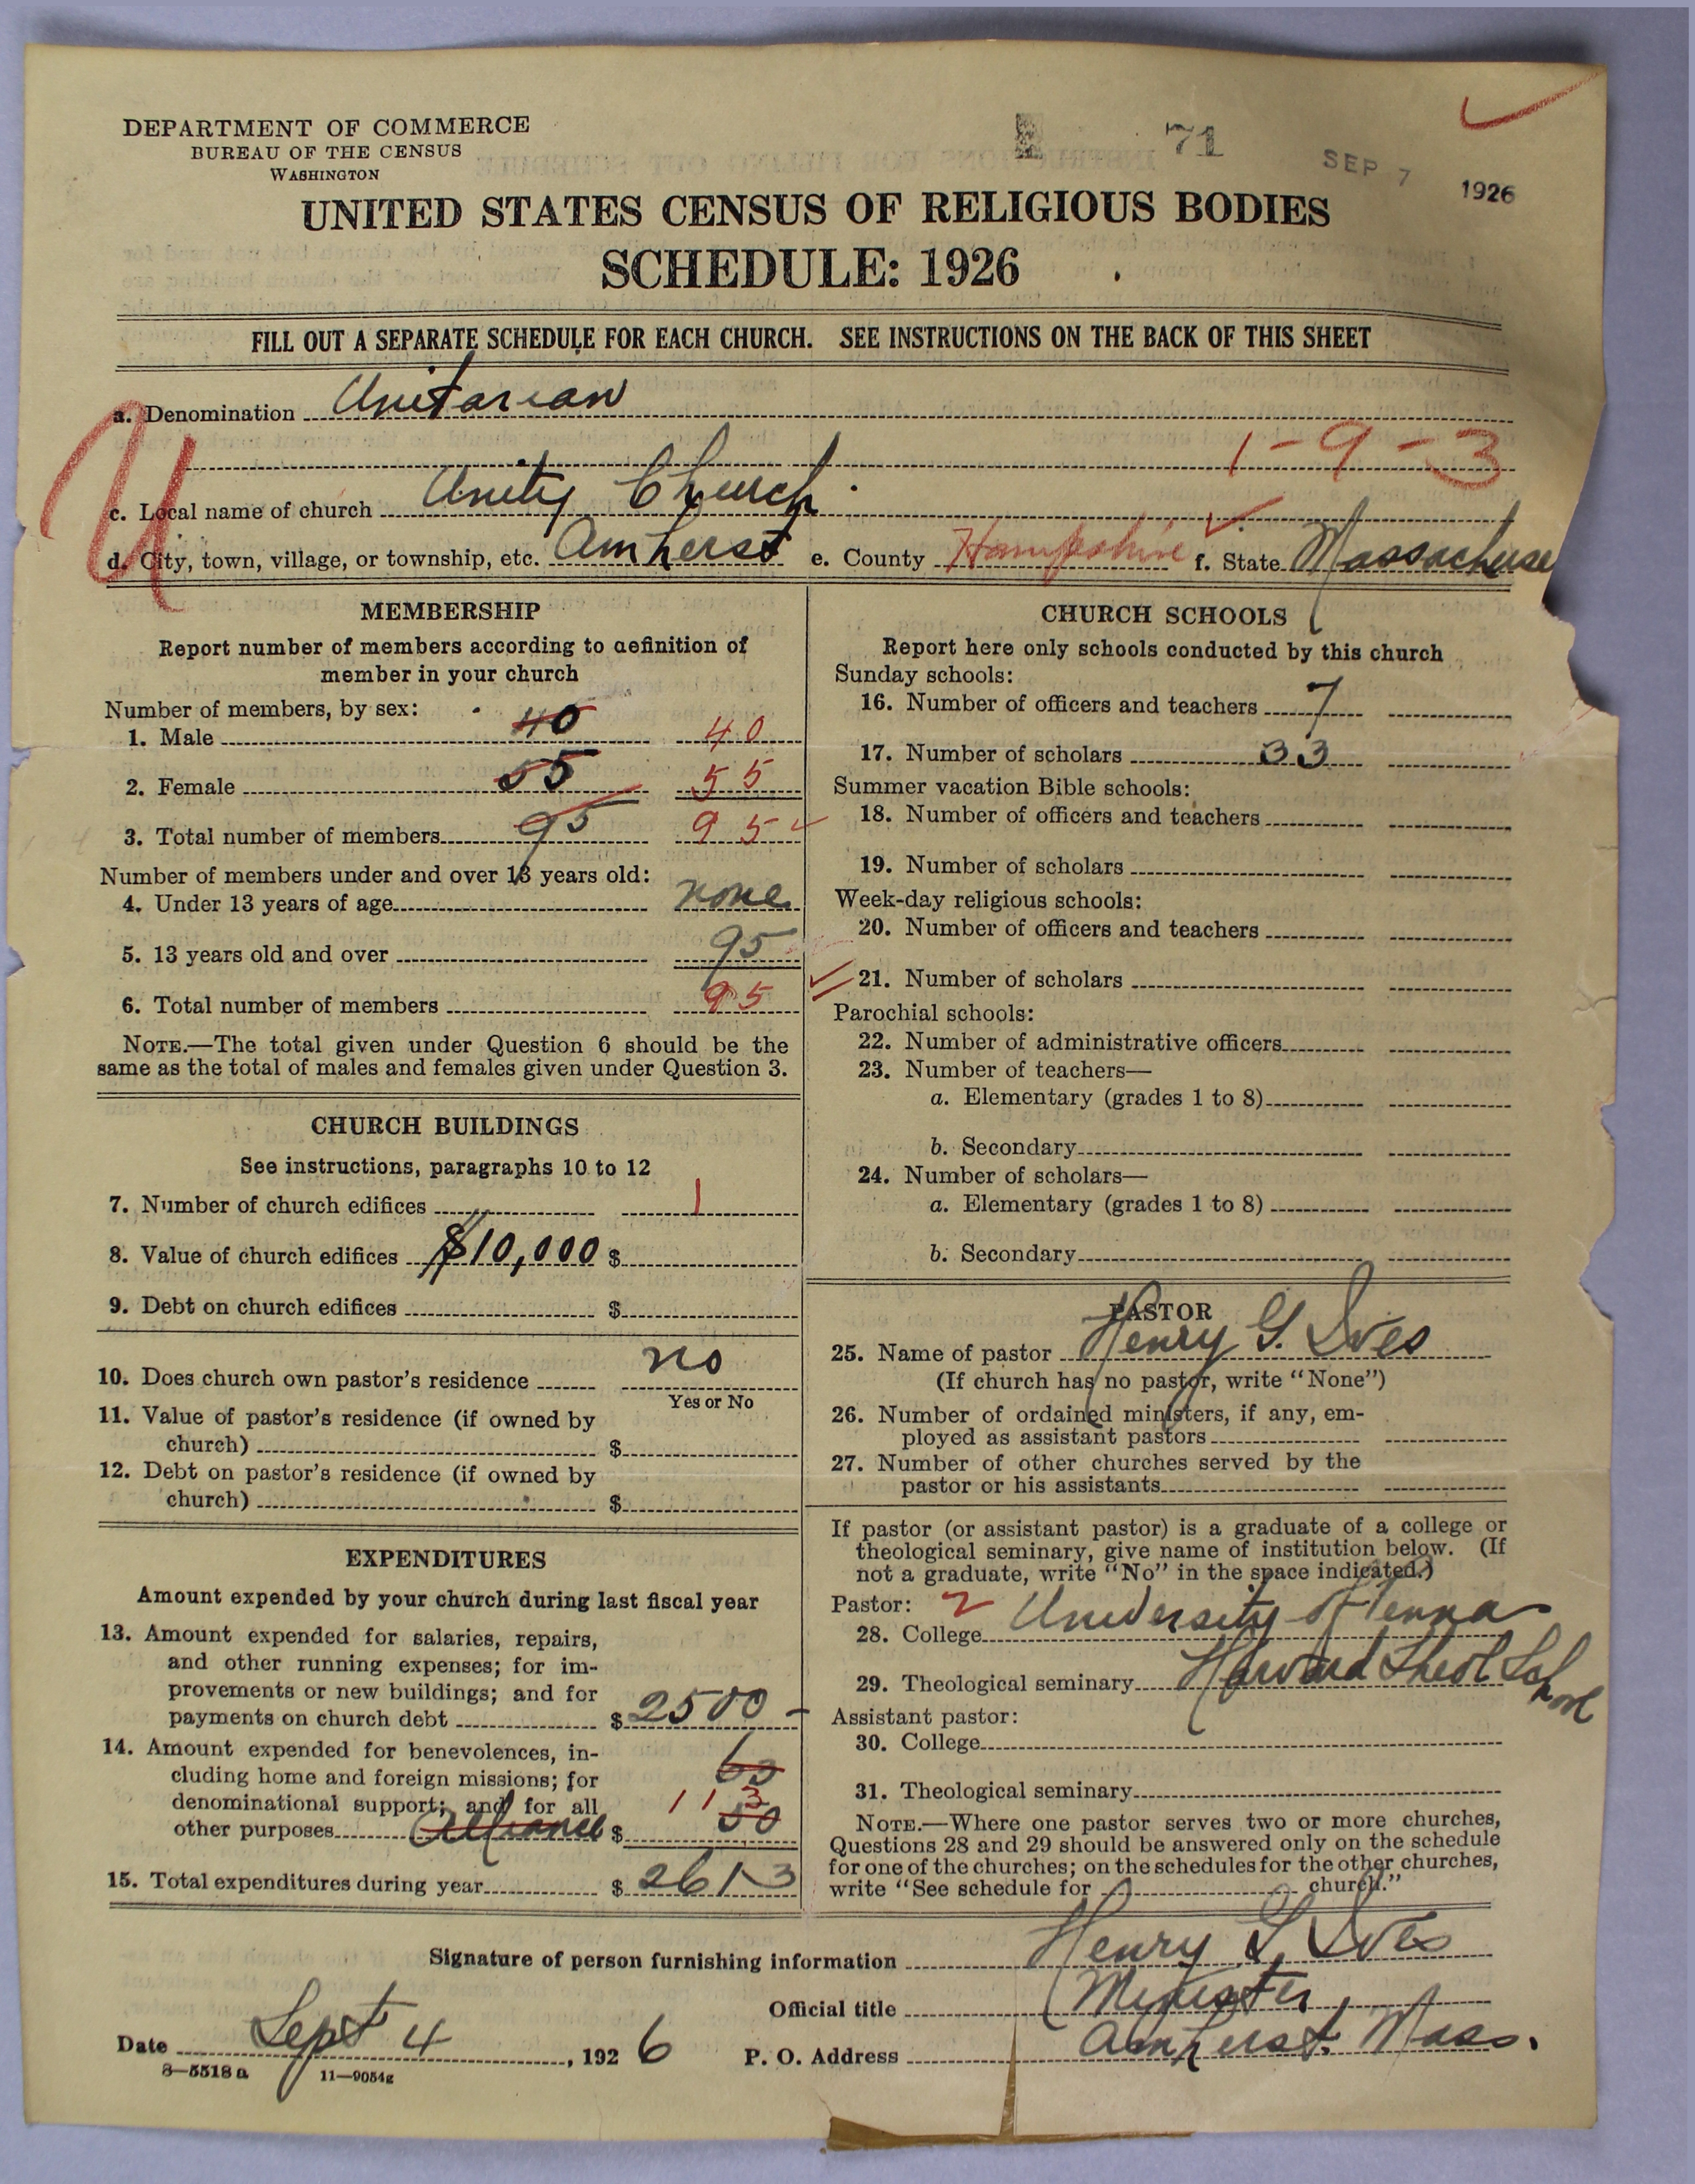 DEPARTMENT OF COMMERCE
BUREAU OF THE CENSUS
WASHINGTON
71
SEP 7 1926
UNITED STATES CENSUS OF RELIGIOUS BODIES
SCHEDULE: 1926
FILL OUT A SEPARATE SCHEDULE FOR EACH CHURCH. SEE INSTRUCTIONS ON THE BACK OF THIS SHEET
a. Denomination Unitarian
U
1-9-3
c. Local name of church Unity Church
d. City, town, village, or township, etc. Amherst e. County Hampshire f. State Massachuse
MEMBERSHIP
Report number of members according to definition of
member in your church
Number of members, by sex:
1. Male 40 40
2. Female 55 55
3. Total number of members 95 95
Number of members under and over 13 years old:
4. Under 13 years of age none
5. 13 years old and over 95
6. Total number of members 95
NOTE.—The total given under Question 6 should be the
same as the total of males and females given under Question 3.
CHURCH BUILDINGS
See instructions, paragraphs 10 to 12
7. Number of church edifices 1
8. Value of church edifices $10,000 $
9. Debt on church edifices $
10. Does church own pastor's residence no
Yes or No
11. Value of pastor's residence (if owned by
church) $
12. Debt on pastor's residence (if owned by
church) $
EXPENDITURES
Amount expended by your church during last fiscal year
13. Amount expended for salaries, repairs,
and other running expenses; for im-
provements or new buildings; and for
payments on church debt $ 2500 -
14. Amount expended for benevolences, in-
cluding home and foreign missions; for
denominational support; and for all 113
other purposes Alliance $ 50
15. Total expenditures during year $ 2613
CHURCH SCHOOLS
Report here only schools conducted by this church
Sunday schools:
16. Number of officers and teachers 7
17. Number of scholars 33
Summer vacation Bible schools:
18. Number of officers and teachers
19. Number of scholars
Week-day religious schools:
20. Number of officers and teachers
21. Number of scholars
Parochial schools:
22. Number of administrative officers
23. Number of teachers—
a. Elementary (grades 1 to 8)
b. Secondary
24. Number of scholars—
a. Elementary (grades 1 to 8)
b. Secondary
PASTOR
25. Name of pastor Henry G. Ives
(If church has no pastor, write "None")
26. Number of ordained ministers, if any, em-
ployed as assistant pastors
27. Number of other churches served by the
pastor or his assistants
If pastor (or assistant pastor) is a graduate of a college or
theological seminary, give name of institution below. (If
not a graduate, write "No" in the space indicated.)
Pastor: 2
28. College University of Penna
29. Theological seminary Harvard Theol School
Assistant pastor:
30. College
31. Theological seminary
NOTE.—Where one pastor serves two or more churches,
Questions 28 and 29 should be answered only on the schedule
for one of the churches; on the schedules for the other churches,
write "See schedule for church."
Signature of person furnishing information Henry G. Ives
Official title Minister
Date Sept 4, 1926 P. O. Address Amherst, Mass.
8—5518a 11—9054g